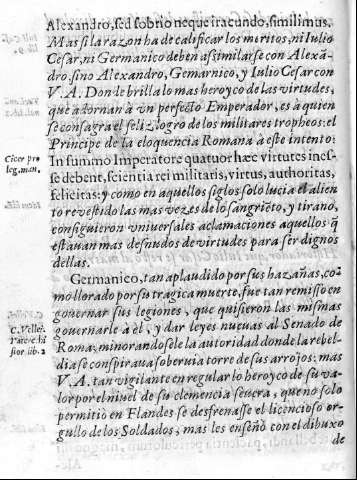 Alexandro, sed sobrio neque iracundo, similimus.
Mas si la razon ha de calificar los meritos, ni Iulio
Cesar, ni Germanico deben assimilarse con Alexã-
dro, sino Alexandro, Gemarnico, y Iulio Cesar con
V. A. Donde brilla lo mas heroyco de las virtudes,
que adornan à vn perfecto Emperador, es à quien
se consagra el feliz logro de los militares tropheos: el
Principe de la eloquencia Romana à este intento:
Cicer pro
leg. man.
In summo Imperatore quatuor hæc virtutes ines-
se debent, scientia rei militaris, virtus, authoritas,
felicitas: y como en aquellos siglos solo lucia el alien
to revestido las mas vezes de lo sangriẽto, y tirano,
consiguieron vniversales aclamaciones aquellos q̃
estauan mas desnudos de virtudes para ser dignos
dellas.
Germanico, tan aplaudido por sus hazañas, co-
mo llorado por su tragica muerte, fue tan remisso en
governar sus legiones, que quisieron las mismas
C. Vellei.
Paterc. hi
stor. lib. 2
governarle à èl, y dar leyes nuevas al Senado de
Roma; minorandosele la autoridad donde la rebel-
dia se conspiraua soberuia torre de sus arrojos: mas
V. A. tan vigilante en regular lo heroyco de su va-
lor por el niuel de su clemencia seuera, que no solo
permitiò en Flandes se desfrenasse el licencioso or-
gullo de los Soldados, mas les enseñò con el dibuxo
de